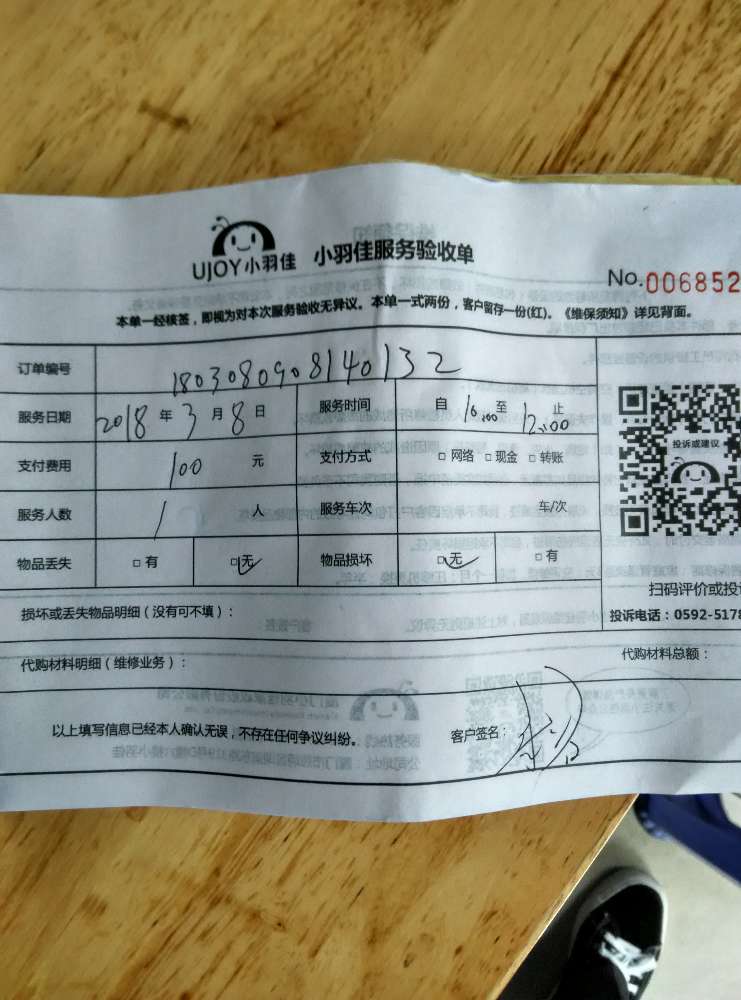 UJOY小羽佳 小羽佳服务验收单
No.006852
本单一经核签，即视为对本次服务验收无异议。本单一式两份，客户留存一份(红)。《维保须知》详见背面。
订单编号 1803080908140132
服务日期 2018 年 3 月 8 日 服务时间 自 10:00 至 12:00 止
支付费用 100 元 支付方式 □ 网络 □ 现金 □ 转账
投诉或建议
服务人数 1 人 服务车次 车/次
物品丢失 □ 有 □ 无 物品损坏 □ 无 □ 有
扫码评价或投
损坏或丢失物品明细（没有可不填）：
投诉电话：0592-5178
代购材料明细（维修业务）： 代购材料总额：
以上填写信息已经本人确认无误，不存在任何争议纠纷。 客户签名：